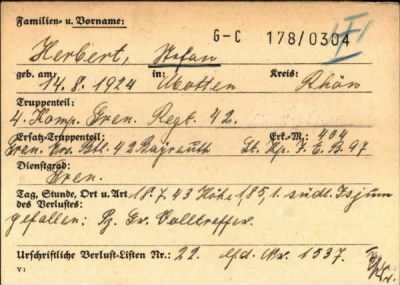 Familien- u. Vorname:
G-C 178/0304
Herbert, Stefan
geb. am: 14.8.1924 in: Motten Kreis: Rhön
Truppenteil:
4. Komp. Gren. Regt. 42.
Ersatz-Truppenteil: Erk.-M.: 404
Gren. Ers. Btl. 42 Bayreuth St. Kp. J. E. B. 97
Dienstgrad:
Gren.
Tag, Stunde, Ort u. Art 18.7.43 Höhe 185,1 südl. Isjum
des Verlustes:
gefallen: Volltreffer.
Urschriftliche Verlust-Listen Nr.: 22. lfd. Nr. 1037.
V: